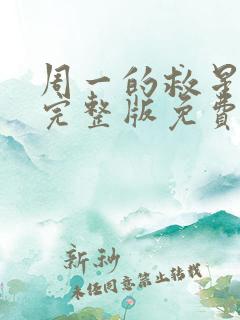 周一的救星
完整版免费
新秒
未经同意禁止转载